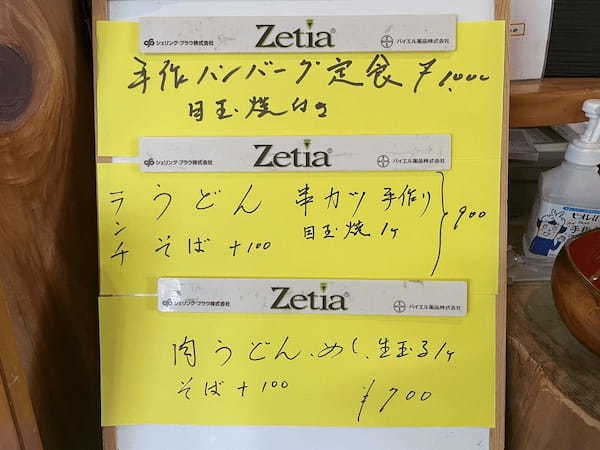 シェリング・プラウ株式会社 Zetia® バイエル薬品株式会社
手作ハンバーグ定食 ¥1,000
目玉焼付
シェリング・プラウ株式会社 Zetia® バイエル薬品株式会社
ランチ
うどん 串カツ 手作り
そば +100 目玉焼 1ヶ
900
シェリング・プラウ株式会社 Zetia® バイエル薬品株式会社
肉うどん、めし、生玉子1ヶ
そば +100 ¥700